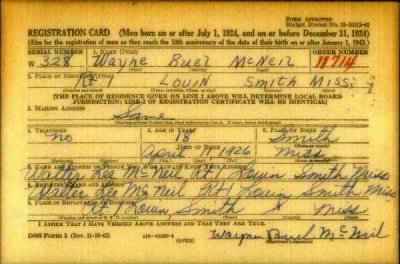 FORM APPROVED
REGISTRATION CARD (Men born on or after July 1, 1924, and on or before December 31, 1924)
(Also for the registration of men as they reach the 18th anniversary of the date of their birth on or after January 1, 1943.)
SERIAL NUMBER 1. NAME (Print) ORDER NUMBER
W. 328 Wayne Buel McNeil 11714
2. PLACE OF RESIDENCE (Print)
Rt 1 Louin Smith Miss.
[THE PLACE OF RESIDENCE GIVEN ON LINE 2 ABOVE WILL DETERMINE LOCAL BOARD
JURISDICTION; LINE 2 OF REGISTRATION CERTIFICATE WILL BE IDENTICAL]
3. MAILING ADDRESS
Same
4. TELEPHONE 5. AGE IN YEARS 6. PLACE OF BIRTH
no 18 Smith
DATE OF BIRTH
April 1926 Miss
7. NAME AND ADDRESS OF PERSON WHO WILL ALWAYS KNOW YOUR ADDRESS
Walter Lee McNeil Rt 1 Louin Smith Miss
Walter Lee McNeil Rt 1 Louin Smith Miss
Louin, Smith Miss
I AFFIRM THAT I HAVE VERIFIED ABOVE ANSWERS AND THAT THEY ARE TRUE.
DSS Form 1 (OVER) Wayne Buel McNeil